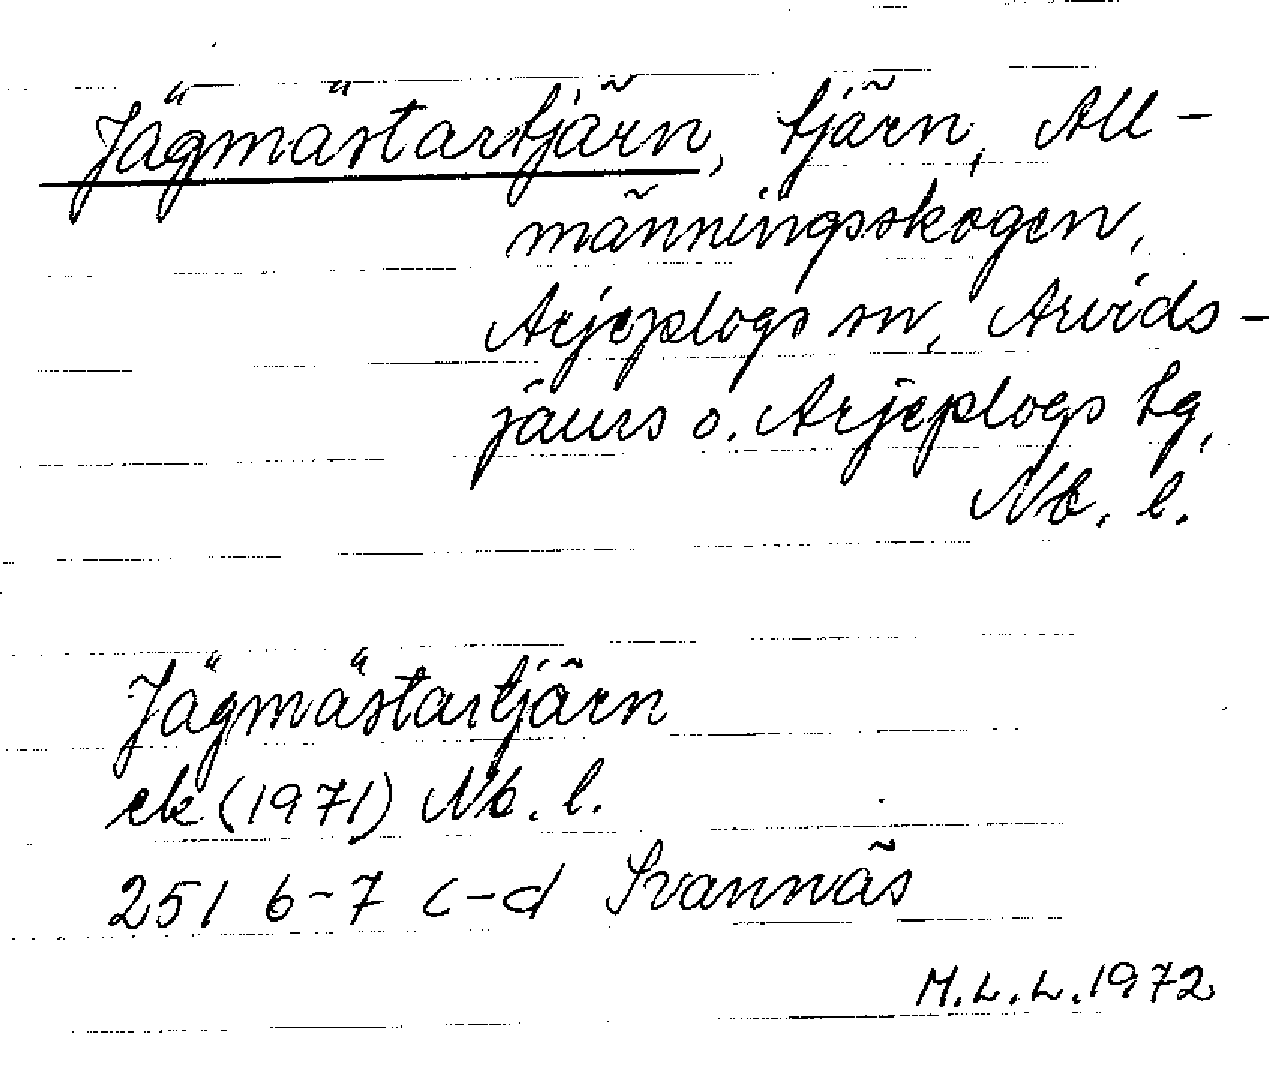 Jägmästartjärn, tjärn, All-
männingsskogen,
Arjeplogs sn, Arvids-
jaurs o. Arjeplogs tg,
Nb. l.
Jägmästartjärn
ek (1971) Nb. l.
251 6-7 c-d Svannäs
M.L.L. 1972